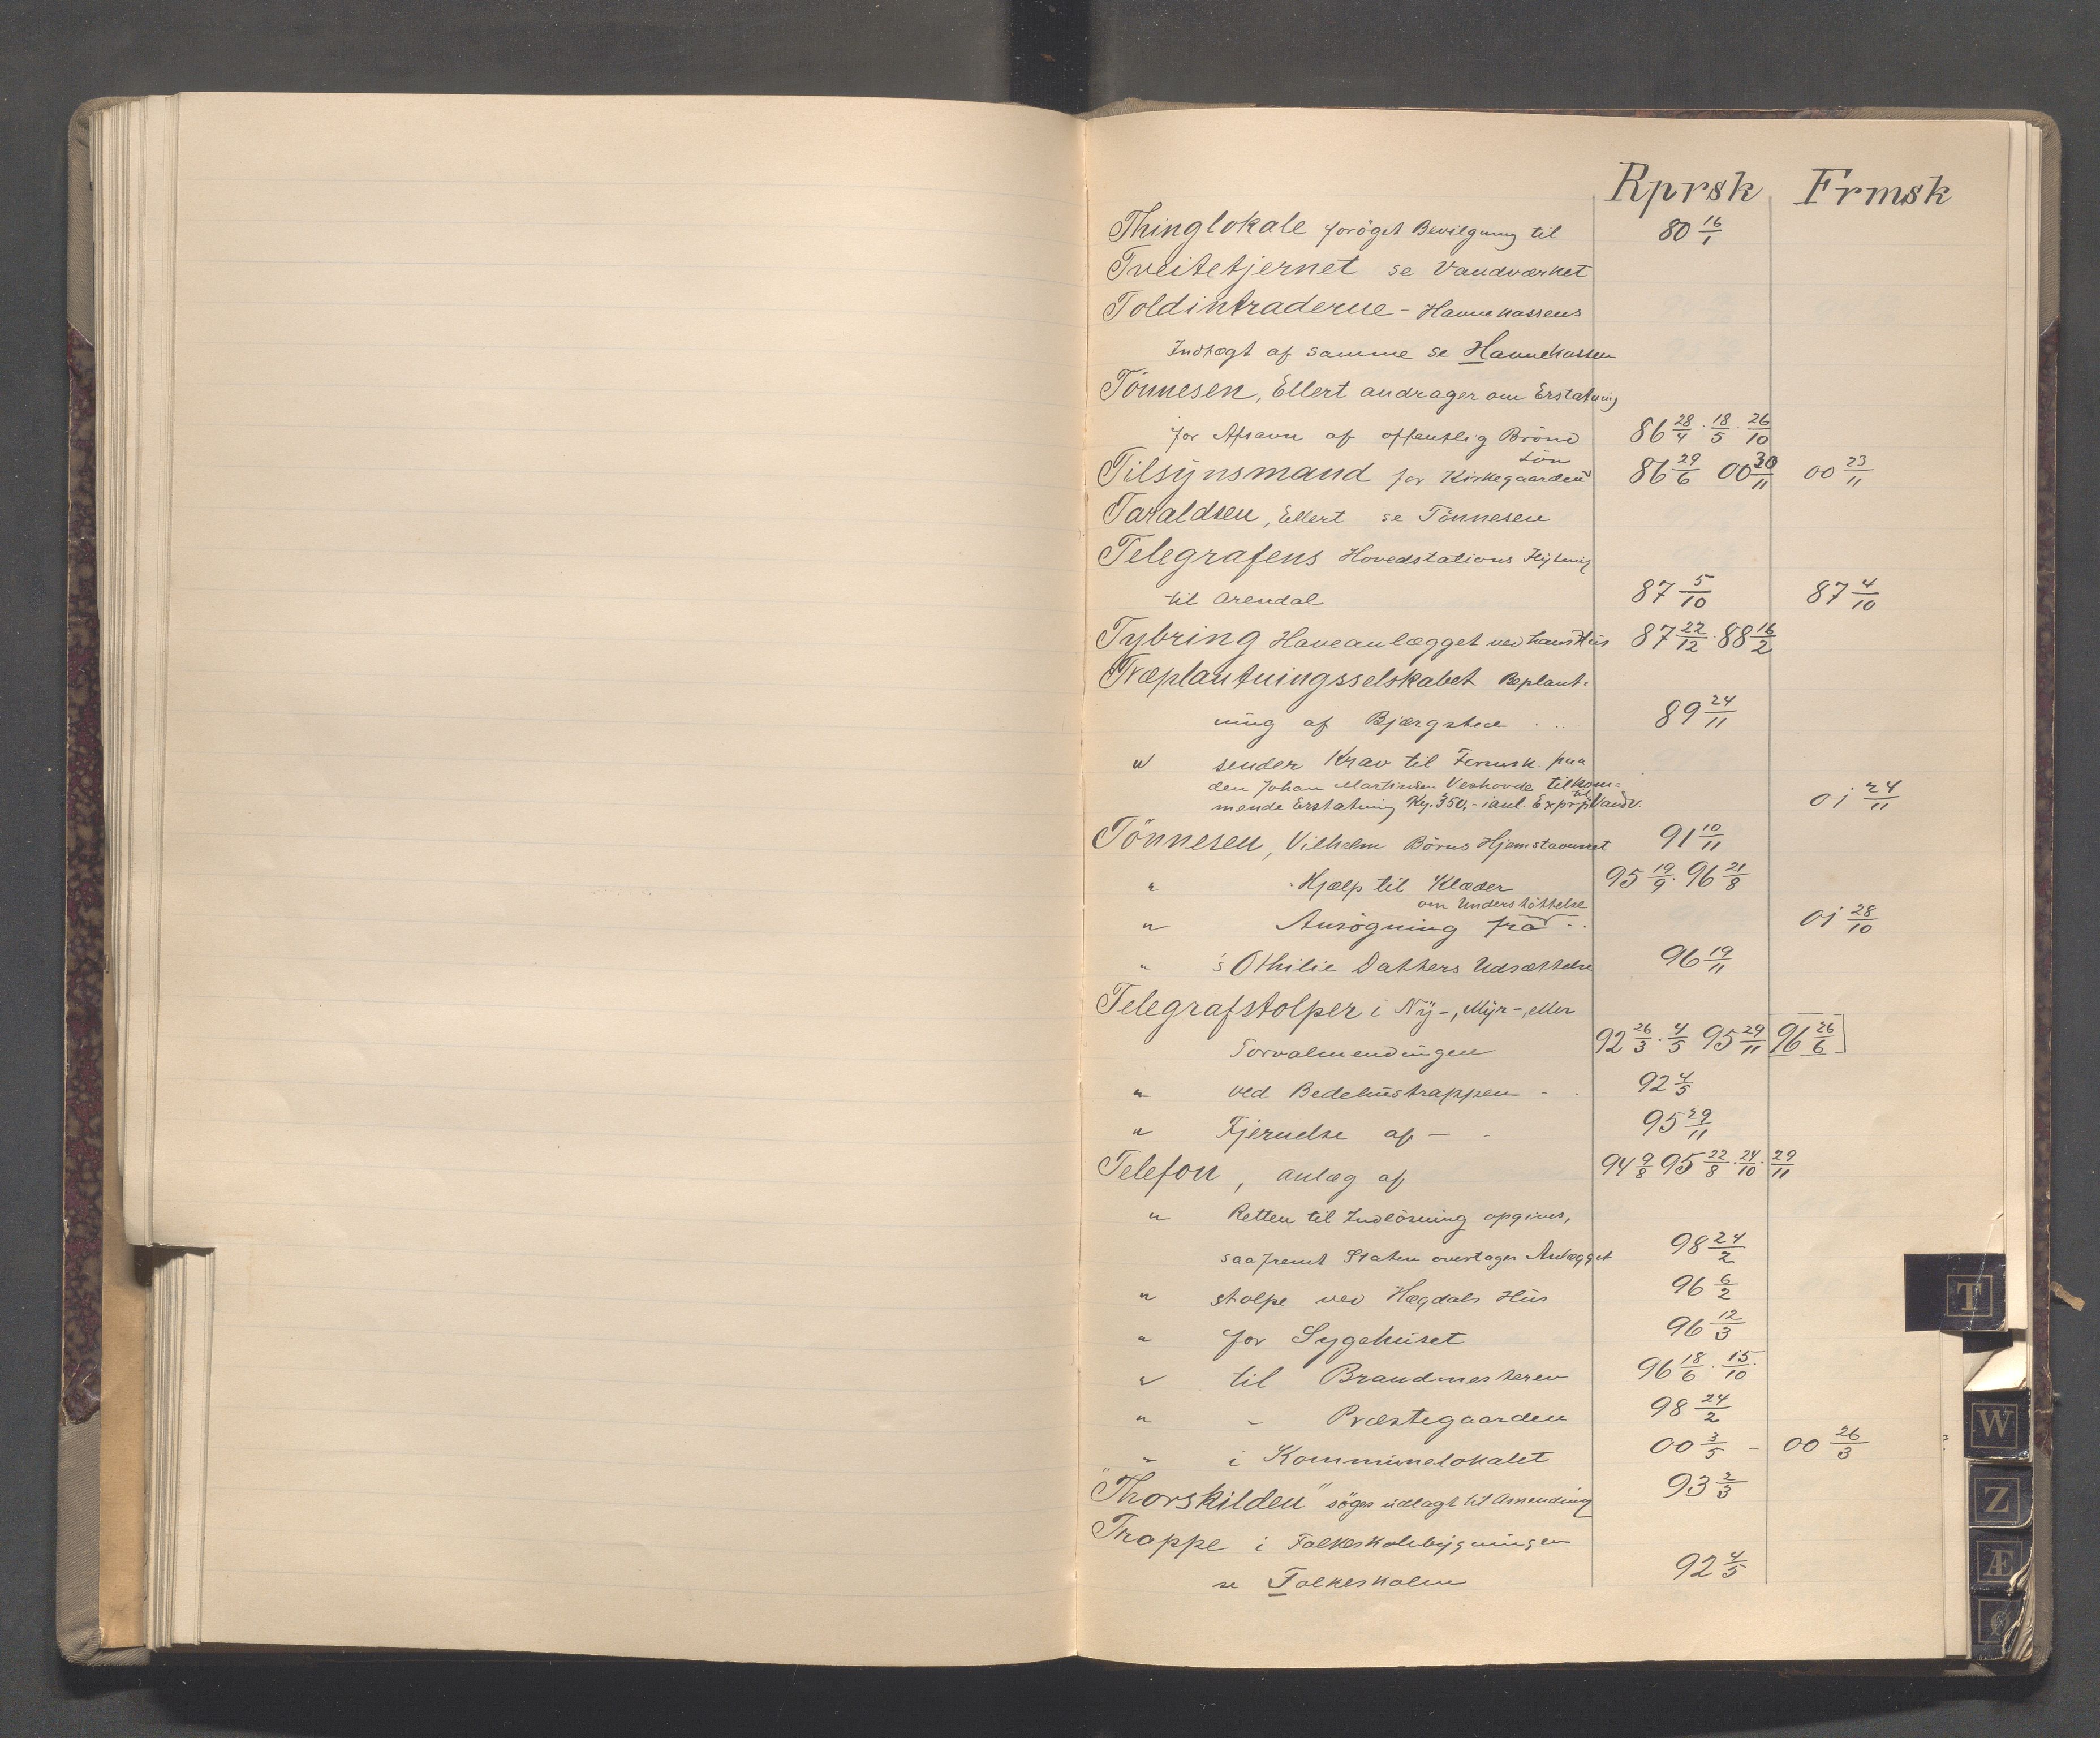 Rprsk Frmsk
Thinglokale forøget Bevilgning til 80 16/1
Tveitetjernet se Vandværket
Toldintraderne - Havnekassens
Indtægt af samme se Havnekassen
Tönnesen, Ellert andrager om Erstatning
for Afsavn af offentlig Brönd 86 28/4 · 18/5 · 26/10
Tilsÿnsmand for Kirkegaarden Lön 86 29/6 00 30/11 00 23/11
Taraldsen, Ellert se Tönnesen
Telegrafens Hovedstations Flytning
til Arendal 87 5/10 87 4/10
Tybring Haveanlægget ved hans Hus 87 22/12 · 88 16/2
Træplantningsselskabet Beplant-
ning af Bjærgsted . .. 89 24/11
" sender Krav til Formsk. paa
den Johan Martinsen Veshovde tilkom-
mende Erstatning Kr. 350,- i anl. Exprp. til Vandv. 01 24/11
Tönnesen, Vilhelm Börns Hjemstavnsret 91 10/11
" Hjælp til Klæder 95 19/9 · 96 21/8
" Ansögning fra om Understöttelse .. 01 28/10
" 's Othilie Datters Udsættelse 96 19/11
Telegrafstolper i Nÿ-, Mÿr-, eller
Torvalmendingen 92 26/3 · 4/5 95 29/11 96 26/6
" ved Bedehustrappen - . 92 4/5
" Fjernelse af - - 95 29/11
Telefon, anlæg af 94 9/8 95 22/8 · 24/10 · 29/11
" Retten til Indlösning opgives,
saafremt Staten overtager Anlægget 98 24/2
" stolpe ved Hægdals Hus 96 6/2
" for Sygehuset 96 12/3
" til Brandmesteren 96 18/6 · 15/10
" - Præstegaarden 98 24/2
" i Kommunelokalet 00 3/5 - 00 26/3
"Thorskilden" söges udlagt til Amending 93 2/3
Trappe i Folkeskolebygningen
se Folkeskolen 92 4/5
T
W
Z
Æ
Ø